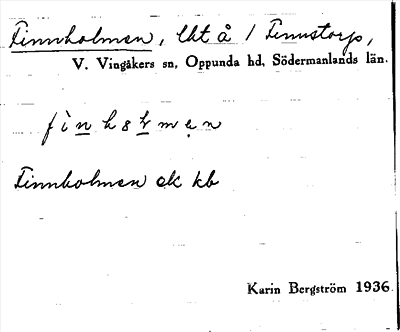 Finnholmen, lht å / Finnstorp,
V. Vingåkers sn, Oppunda hd, Södermanlands län.
Finnholmen ek kb
Karin Bergström 1936